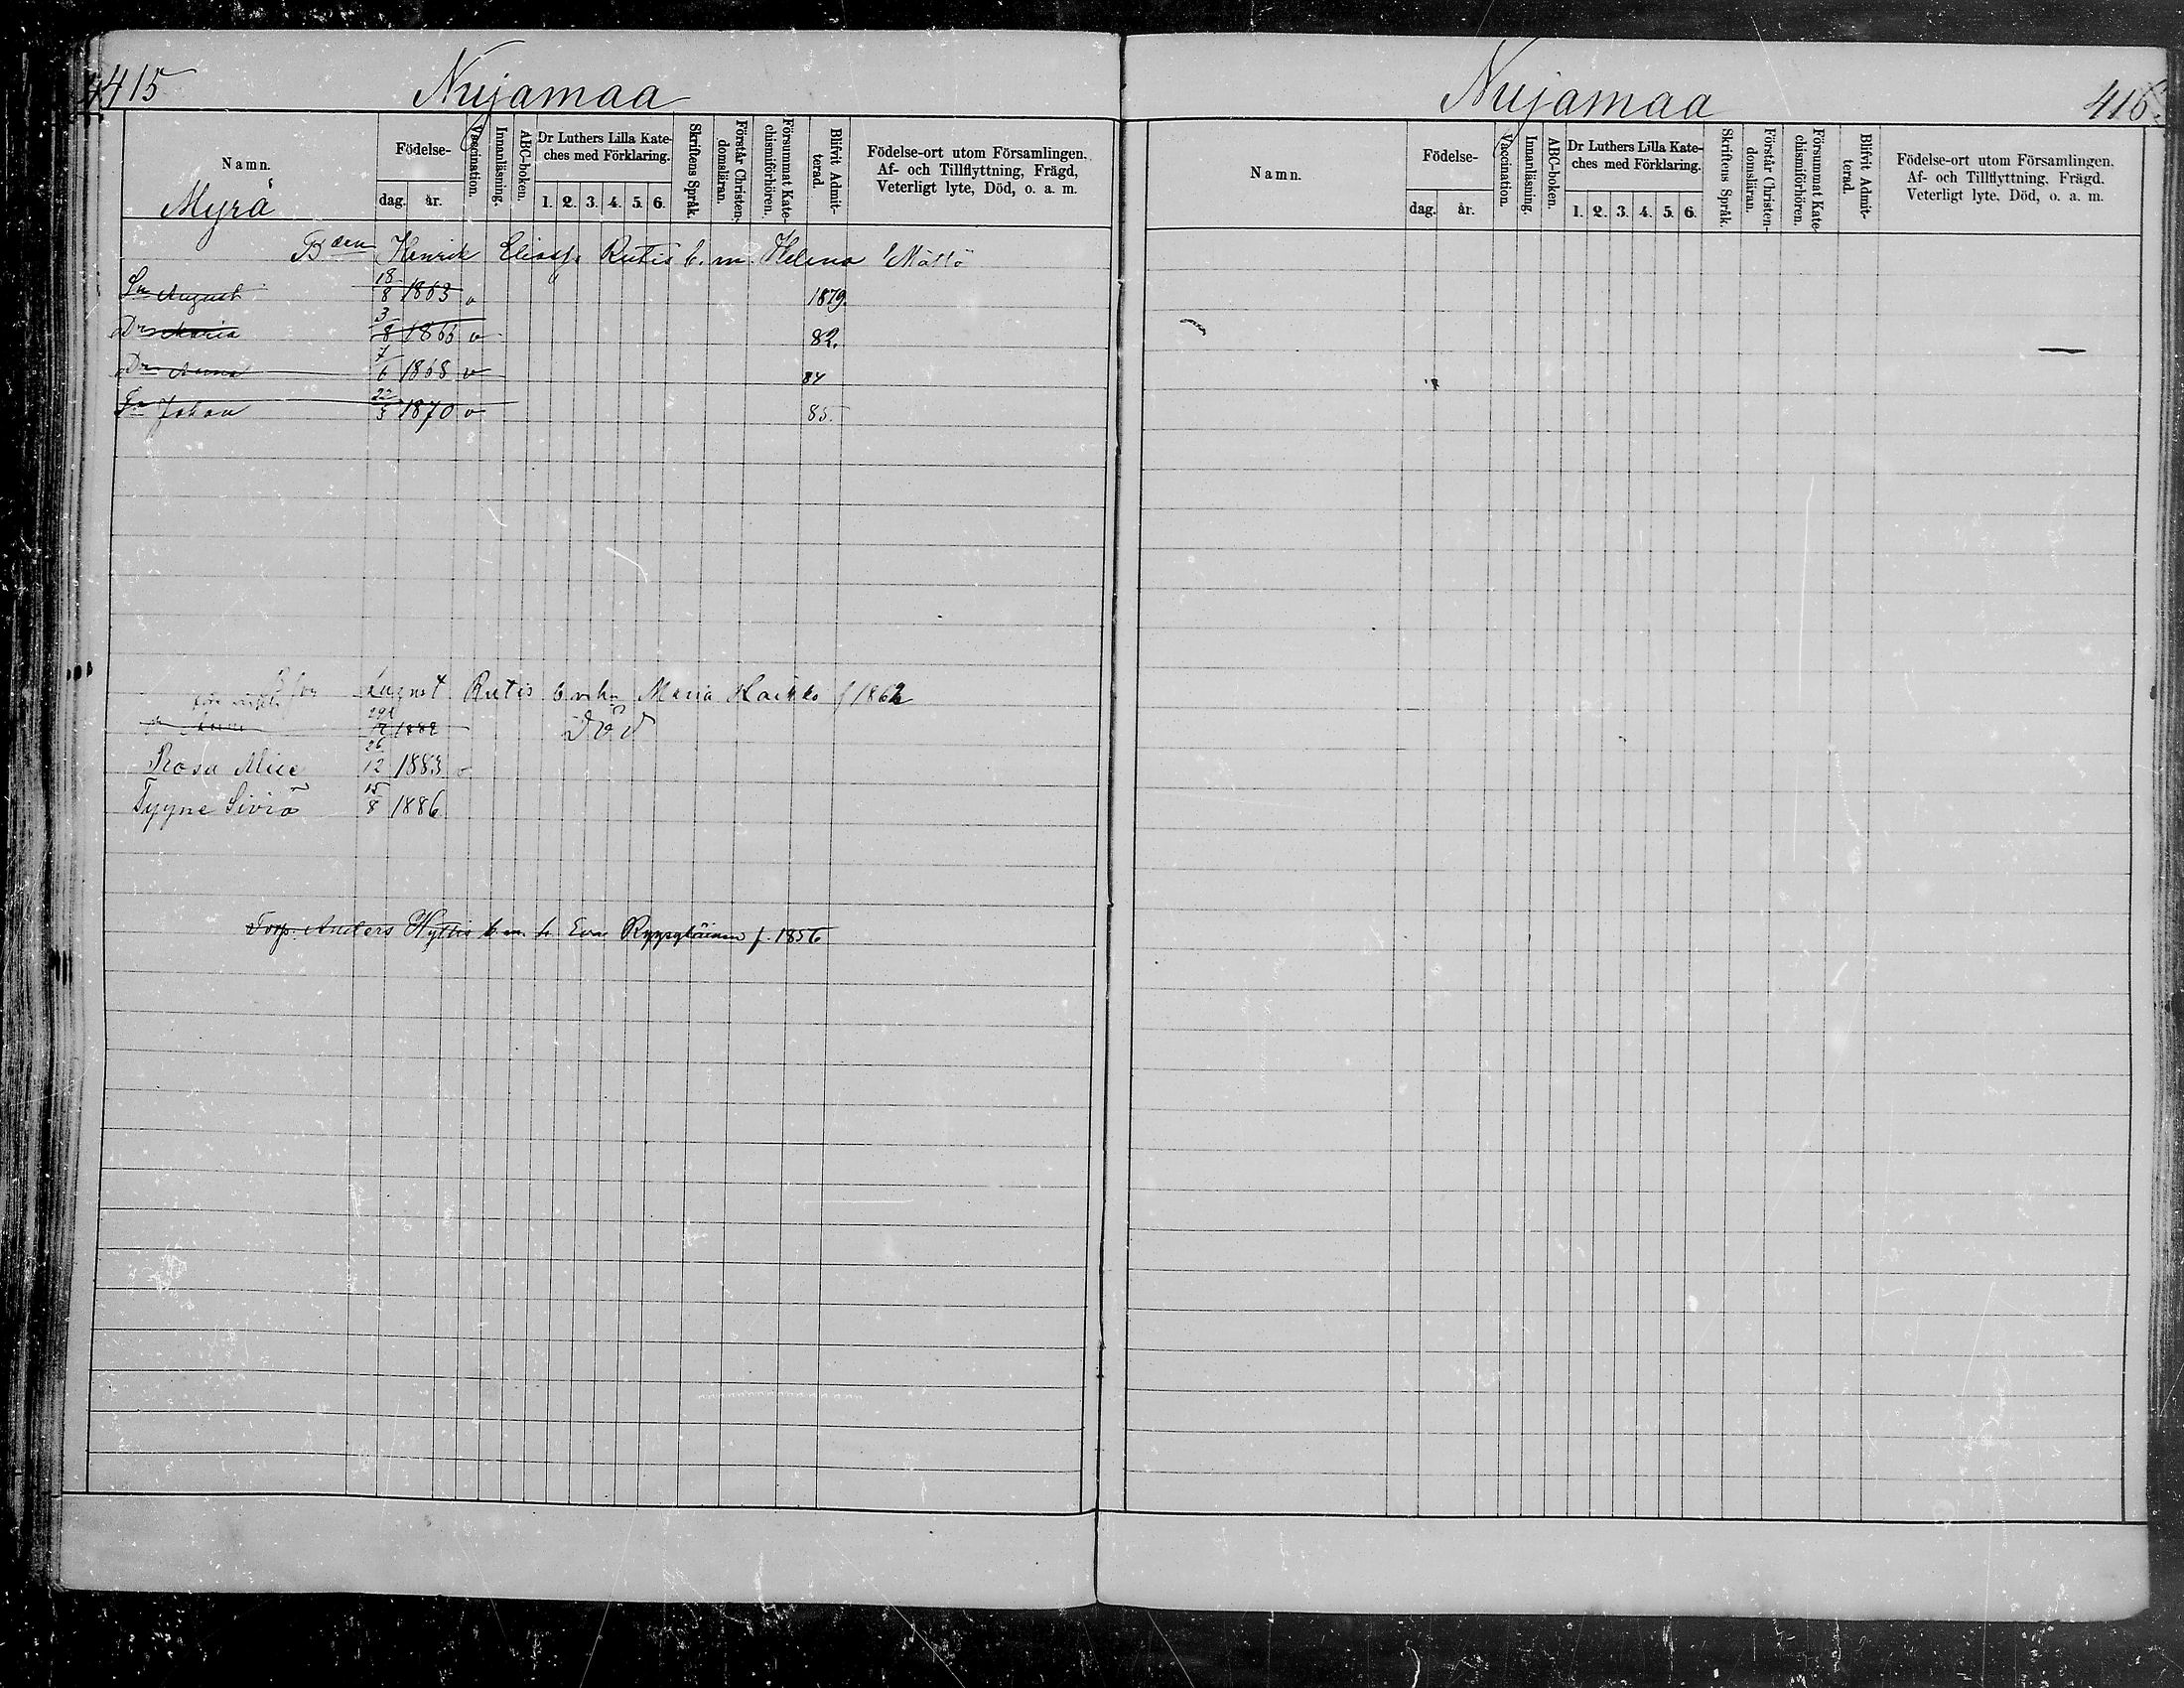 415
Nujamaa
Namn.
Födelse-
dag.
år.
Vaccination.
Innanläsning.
ABC-boken.
Dr Luthers Lilla Kate-
ches med Förklaring.
1. 2. 3. 4. 5. 6.
Skriftens Språk.
Förstår Christen-
domsläran.
Försummat Kate-
chismiförhören.
Blifvit Admit-
terad.
Födelse-ort utom Församlingen.
Af- och Tillflyttning, Frägd,
Veterligt lyte, Död, o. a. m.
Myrä
Bden Henrik Eliass. Rutis b. m. Helena Mättö
Sn August 18/8 1863 v 1879.
Dr Maria 3/8 1866 v 82.
Dr Anna 7/6 1868 v 84
Sn Johan 22/3 1870 v 85.
August Rutis b. m. hu Maria Haikko f 1862
1882 Död
Rosa Alice 26/12 1883 v
Tyyne Siviä 15/8 1886
Torp. Anders Hyttis b. m. h. Eva Ryypyläinen f. 1856
Nujamaa
416.
Namn.
Födelse-
dag.
år.
Vaccination.
Innanläsning.
ABC-boken.
Dr Luthers Lilla Kate-
ches med Förklaring.
1. 2. 3. 4. 5. 6.
Skriftens Språk.
Förstår Christen-
domsläran.
Försummat Kate-
chismiförhören.
Blifvit Admit-
terad.
Födelse-ort utom Församlingen.
Af- och Tillflyttning, Frägd.
Veterligt lyte, Död, o. a. m.